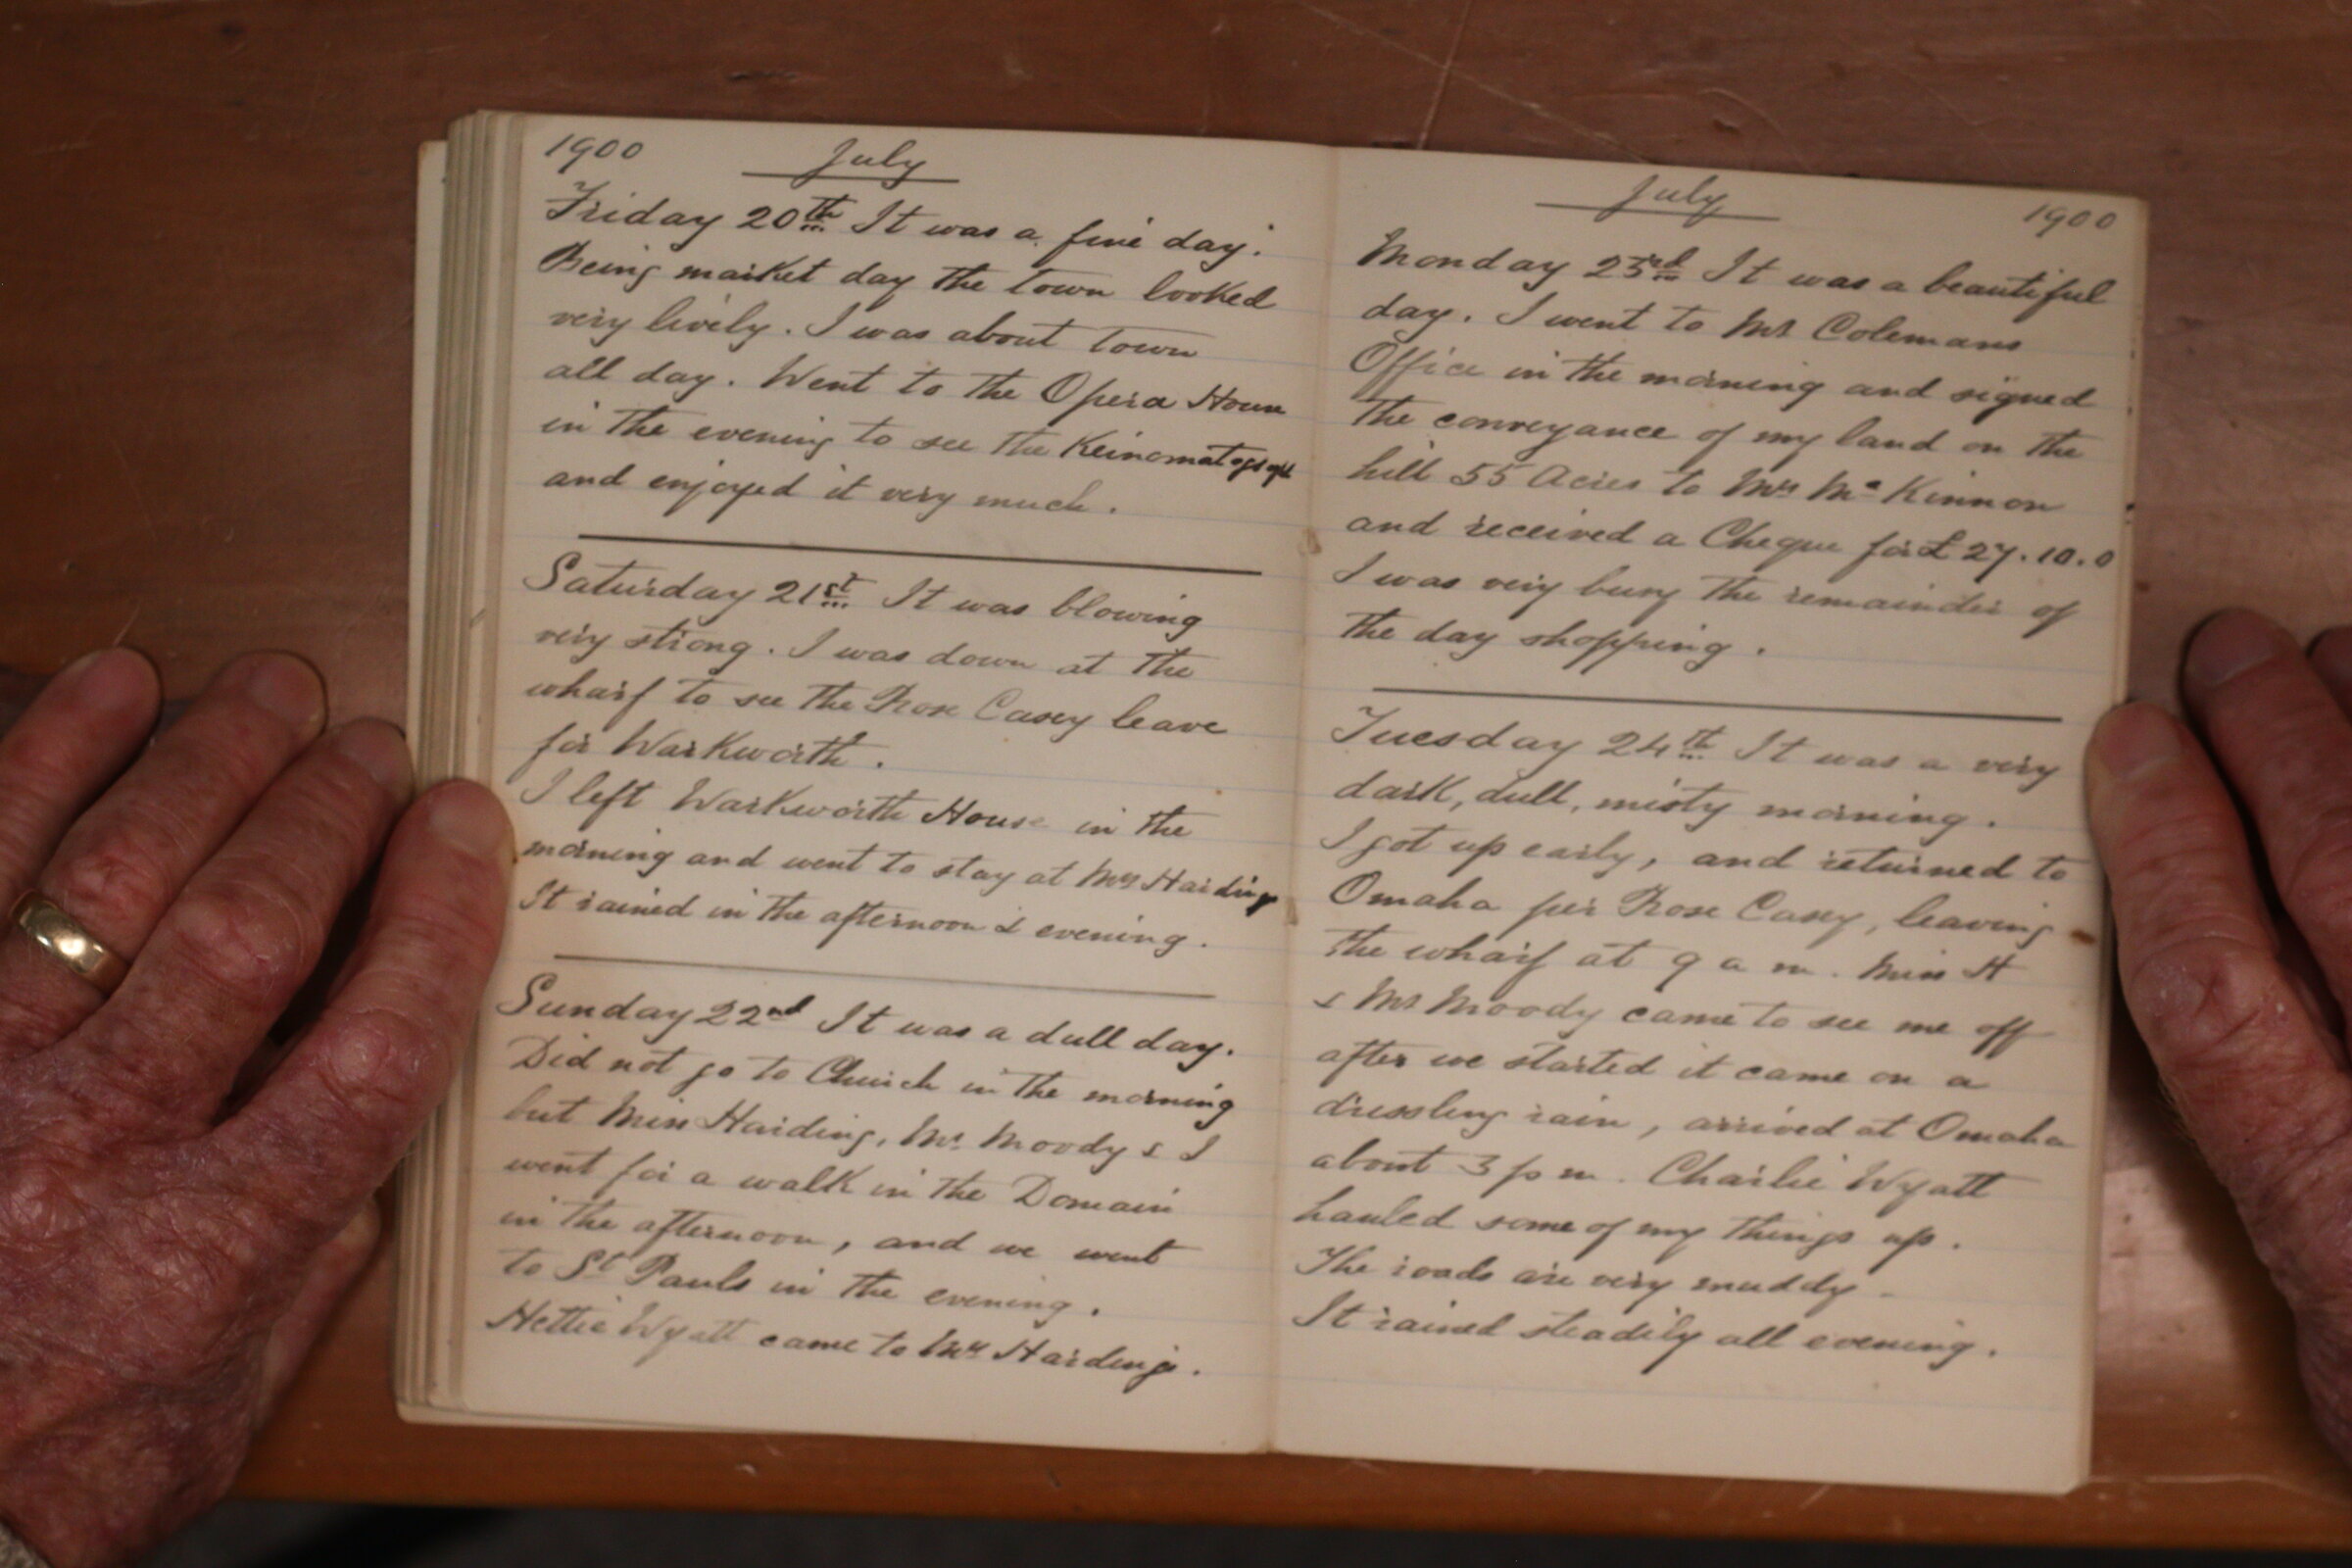 1900 July
Friday 20th It was a fine day.
Being market day the town looked
very lively. I was about town
all day. Went to the Opera House
in the evening to see the
and enjoyed it very much.
Saturday 21st It was blowing
very strong. I was down at the
wharf to see the Rose Casey leave
for Warkworth.
I left Warkworth House in the
morning and went to stay at Mrs Hardings
It rained in the afternoon & evening.
Sunday 22nd It was a dull day.
Did not go to Church in the morning
but Miss Harding, Mr Moody & I
went for a walk in the Domain
in the afternoon, and we went
to St Pauls in the evening.
Hettie Wyatt came to Mrs Hardings.
July 1900
Monday 23rd It was a beautiful
day. I went to Mr Colemans
Office in the morning and signed
the conveyance of my land on the
hill 55 Acres to Mrs McKinnon
and received a Cheque for £27.10.0
I was very busy the remainder of
the day shopping.
Tuesday 24th It was a very
dark, dull, misty morning.
I got up early, and returned to
Omaha per Rose Casey, leaving
the wharf at 9 a m. Miss H
& Mr Moody came to see me off
after we started it came on a
drissling rain, arrived at Omaha
about 3 p m. Charlie Wyatt
hauled some of my things up.
The roads are very muddy.
It rained steadily all evening.